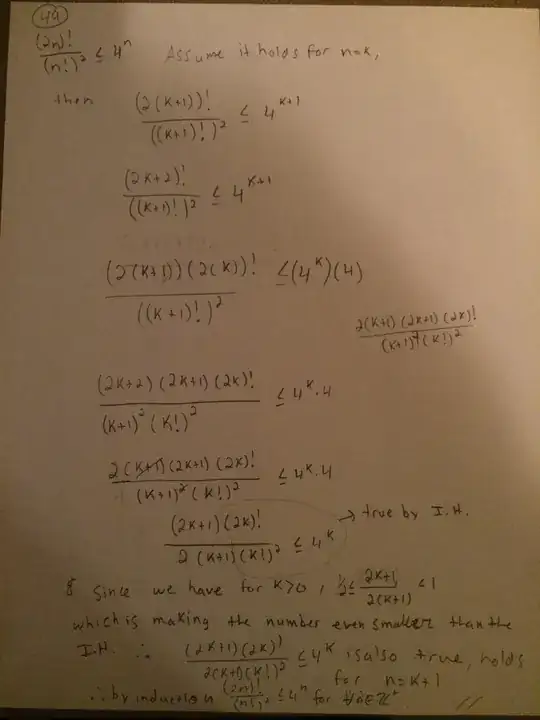 49
(2n)!/(n!)² ≤ 4ⁿ Assume it holds for n=k,
then (2(k+1))!/((k+1)!)² ≤ 4^(k+1)
(2k+2)!/((k+1)!)² ≤ 4^(k+1)
(2(k+1))(2(k))!/((k+1)!)² ≤ (4^k)(4)
2(k+1)(2k+1)(2k)!/(k+1)²(k!)²
(2k+2)(2k+1)(2k)!/(k+1)²(k!)² ≤ 4^k·4
2(k+1)(2k+1)(2k)!/(k+1)²(k!)² ≤ 4^k·4
(2k+1)(2k)!/2(k+1)(k!)² ≤ 4^k → true by I.H.
Since we have for k>0, ½≤ (2k+1)/2(k+1) <1
which is making the number even smaller than the
I.H. ∴ (2k+1)(2k)!/2(k+1)(k!)² ≤ 4^k is also true, holds
for n=k+1
∴ by induction (2n)!/(n!)² ≤ 4ⁿ for ∀n∈ℤ⁺ //